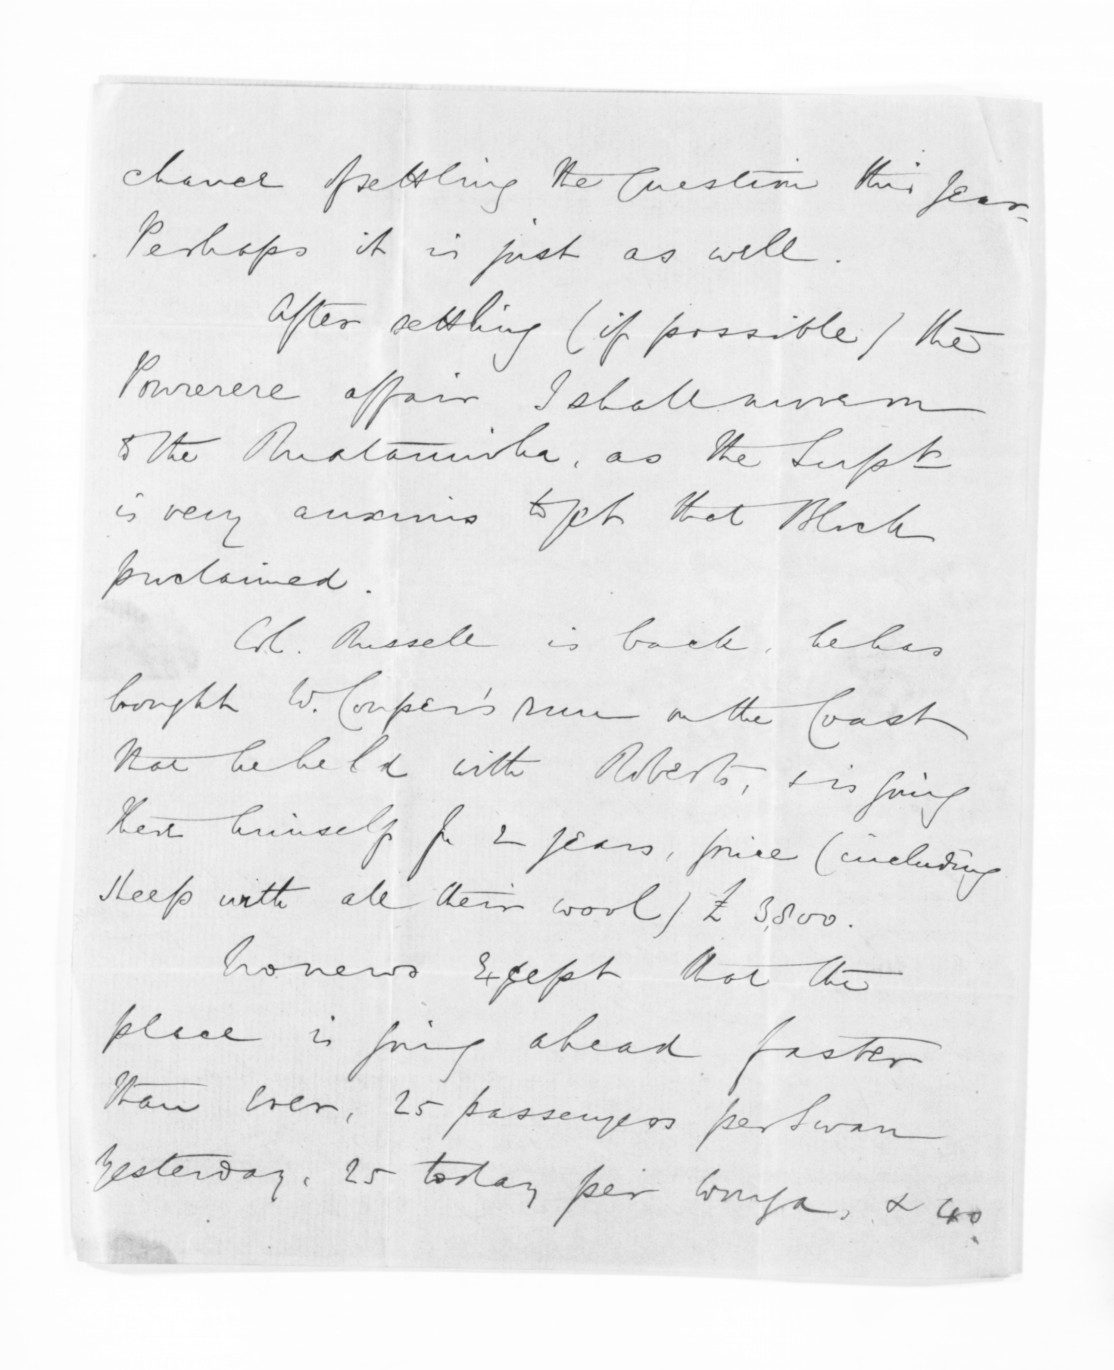 chance of settling the Question this year
Perhaps it is just as well.
After settling (if possible) the
Pourerere affair I shall move on
to the Ruataniwha, as the Supt
is very anxious to get that Block
proclaimed.
Col. Russell is back, he has
bought W. Couper's run on the Coast
that he held with Roberts, & is going
there himself for 2 years, price (including
sheep with all their wool) £3,800.
No news except that the
place is going ahead faster
than ever, 25 passengers per Swan
yesterday, 25 today per Wonga, & 40